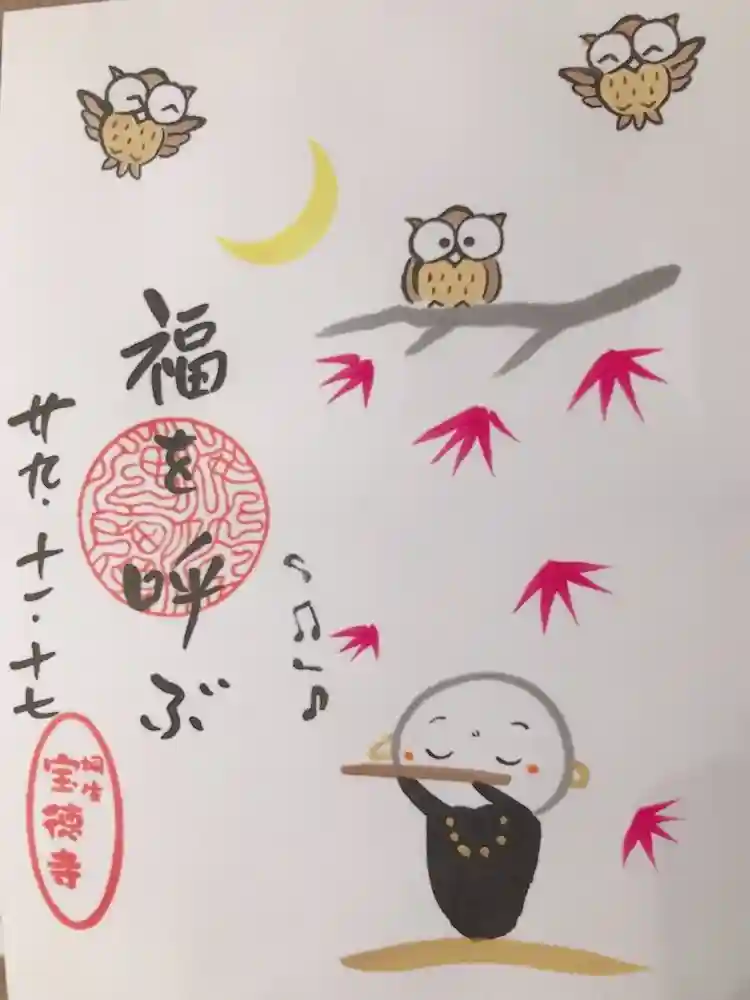 福を呼ぶ
廿九.十一.十七
相生
宝徳寺